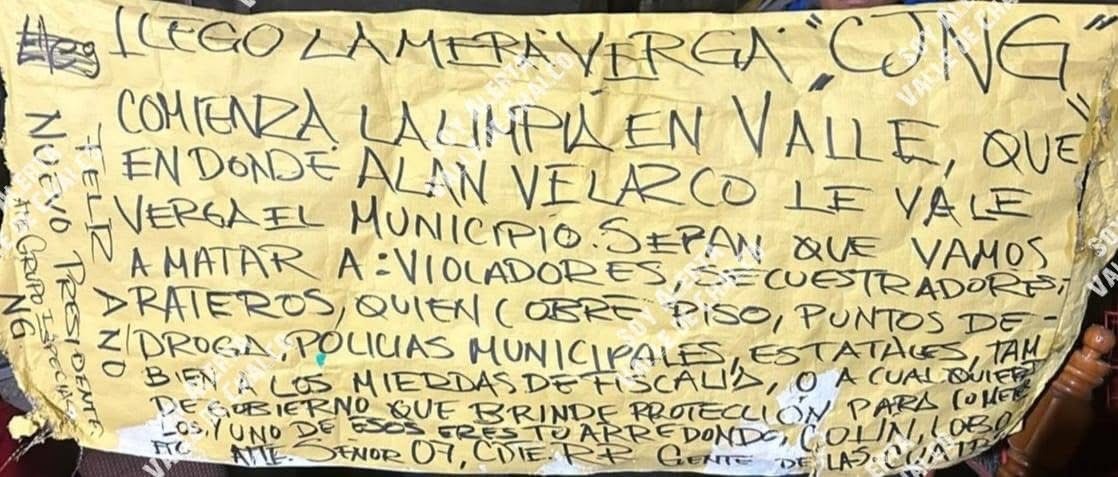 LLEGO LA MERA VERGA "CJNG"
COMIENZA LA LIMPIA EN VALLE, QUE
EN DONDE ALAN VELAZCO LE VALE
VERGA EL MUNICIPIO. SEPAN QUE VAMOS
A MATAR A: VIOLADORES, SECUESTRADORES,
RATEROS, QUIEN COBRE PISO, PUNTOS DE-
DROGA, POLICIAS MUNICIPALES, ESTATALES, TAM
BIEN A LOS MIERDAS DE FISCALIA, O A CUALQUIER
DE GOBIERNO QUE BRINDE PROTECCIÓN PARA COMER
LOS, Y UNO DE ESOS ERES TU ARREDONDO, COLIN, LOBO,
ETC ATTE. SEÑOR 07, CDTE. RR GENTE DE LAS CUATRO
NUEVO PRESIDENTE
ATTE GRUPO
NG
SOY ALERTA
VALLE DE CHALCO